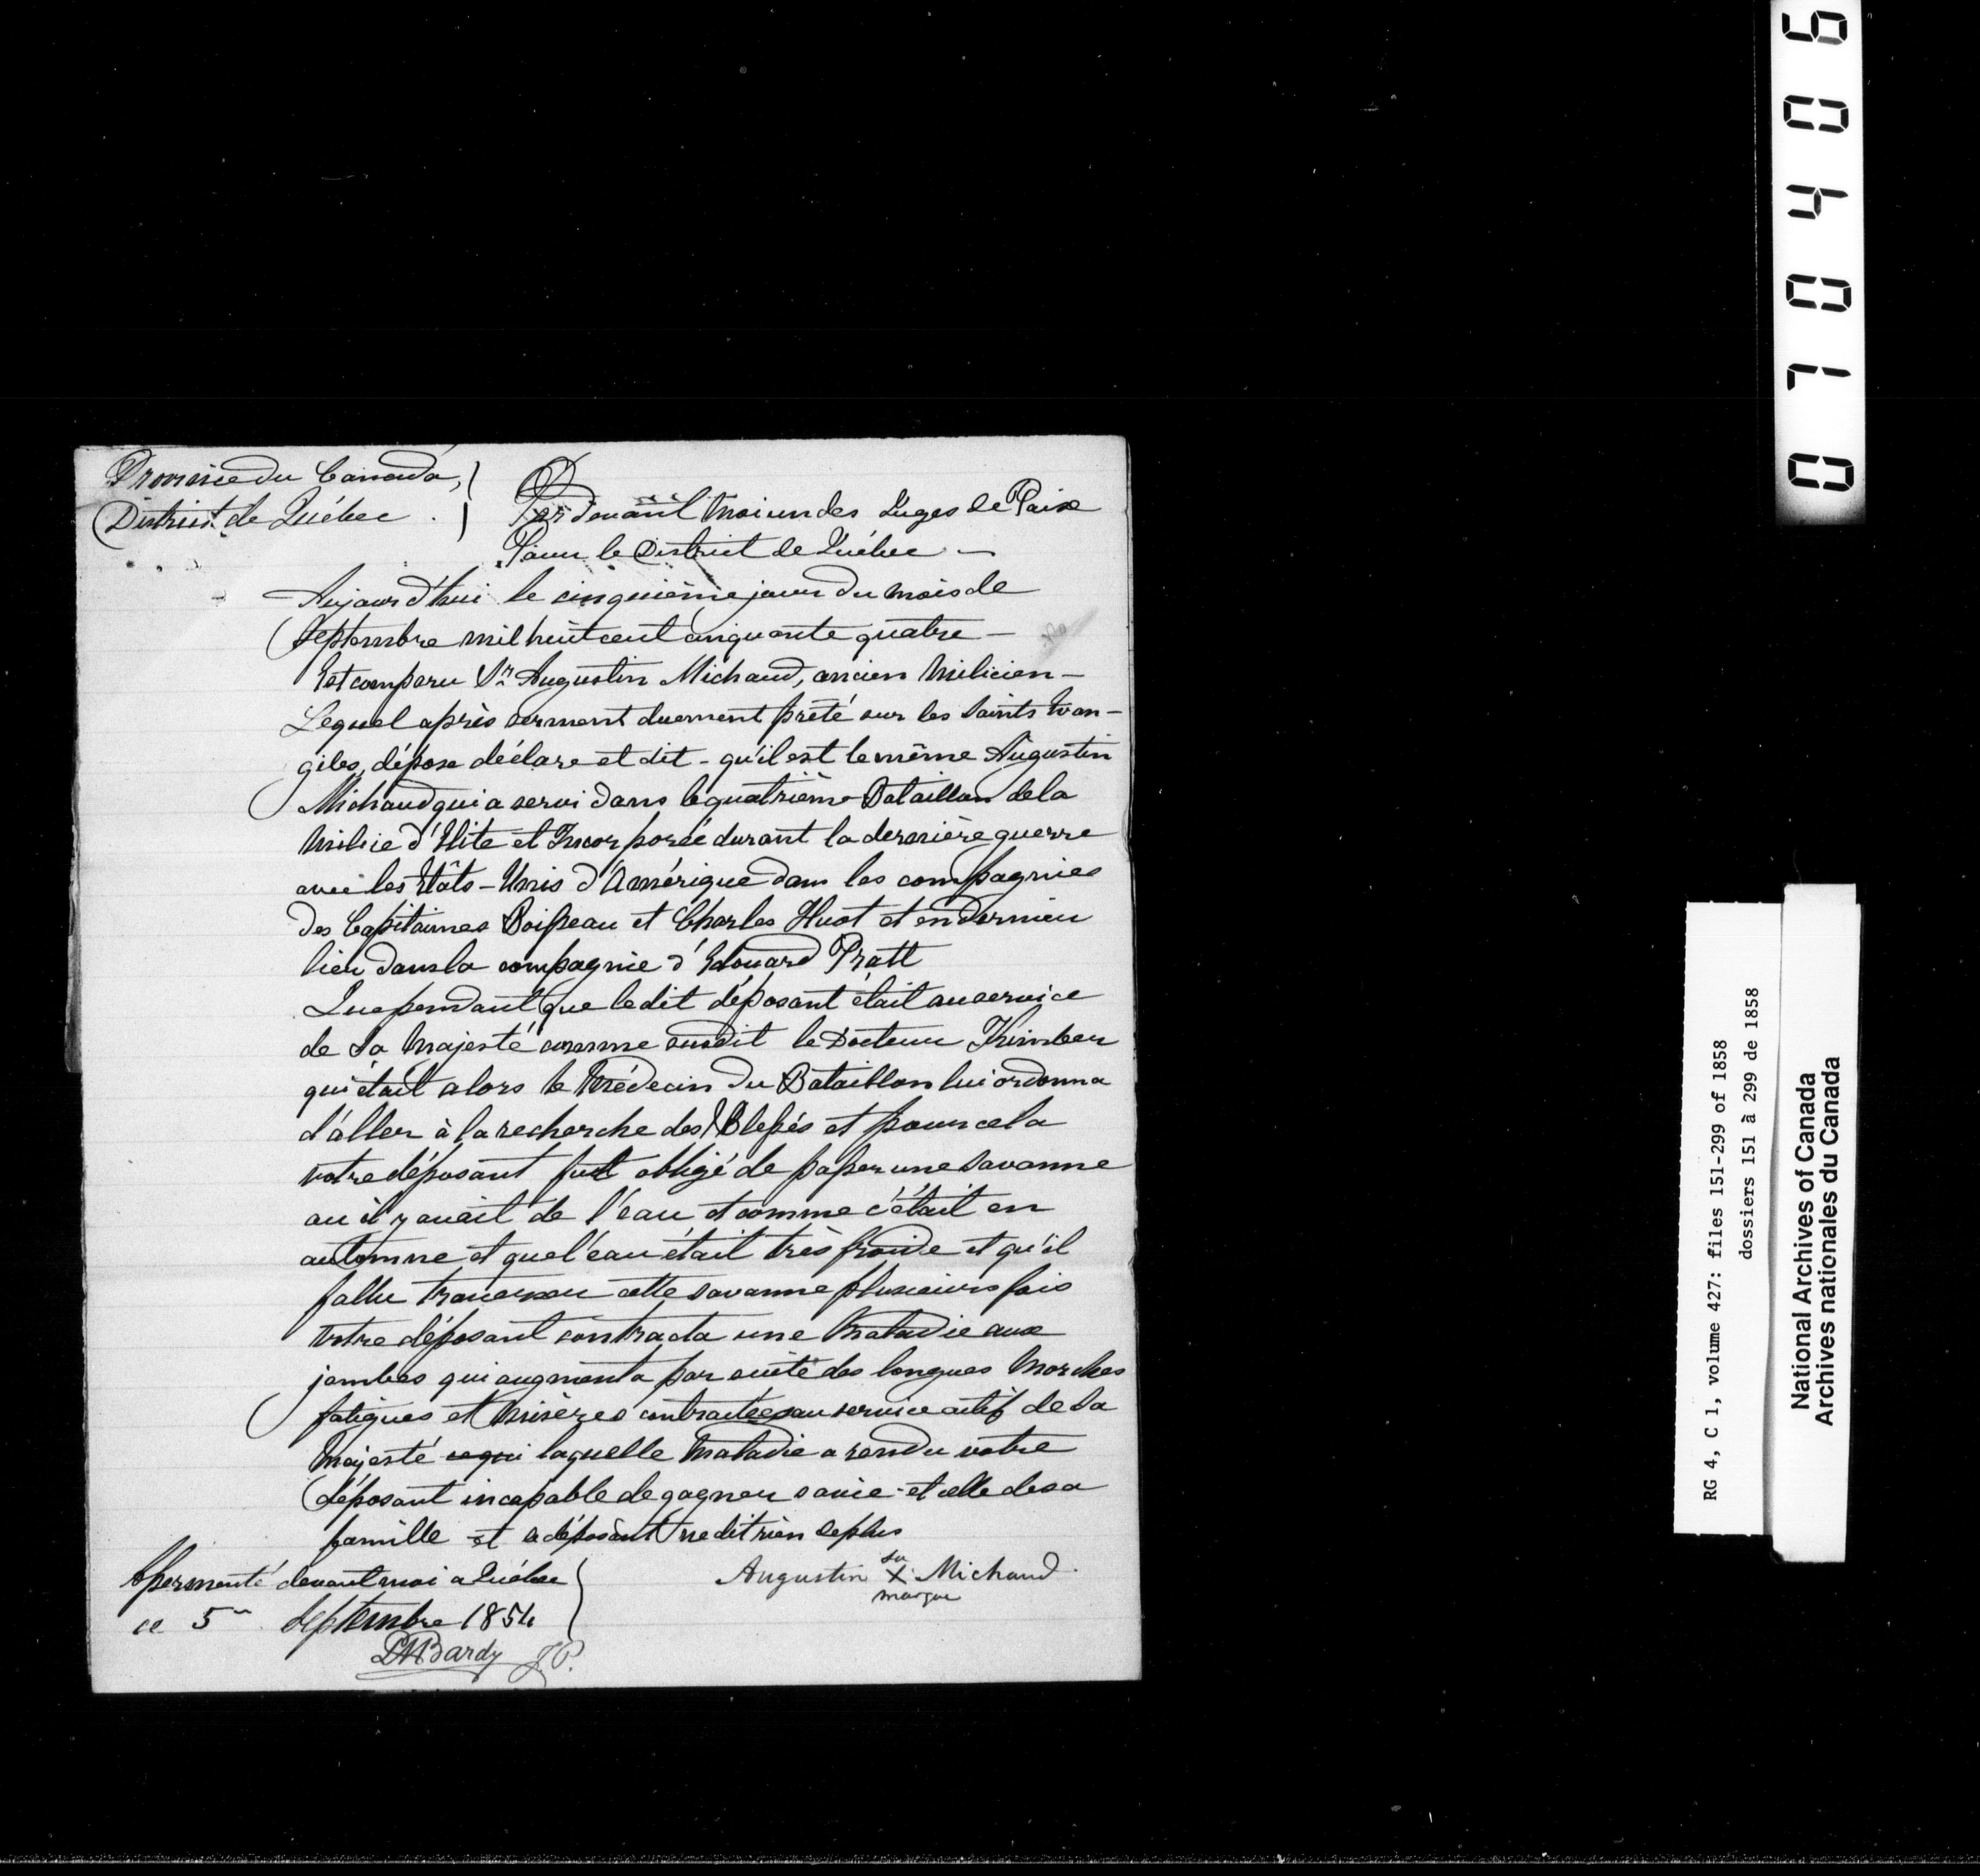 Province du Canada,
District de Québec.
Par devant Moi un des Juges de Paix
Pour le District de Québec —
Aujourd'hui le cinquième jour du mois de
Septembre mil huit cent cinquante quatre —
Est comparu Sr. Augustin Michaud, ancien Milicien —
Lequel après serment duement prêté sur les Saints Evan-
giles, dépose déclare et dit - qu'il est le même Augustin
Michaud qui a servi dans le quatrième Bataillon de la
Milice d'Elite et Incorporée durant la dernière guerre
avec les Etâts-Unis d'Amérique dans les compagnies
des Capitaines Boisseau et Charles Huot et en dernier
lieu dans la compagnie d'Edouard Pratt
Que pendant que le dit déposant était au service
de Sa Majesté comme susdit le Docteur Kimber
qui était alors le Médecin du Bataillon lui ordonna
d'aller à la recherche des Blessés et pour cela
votre déposant fut obligé de passer une Savanne
ou il y avait de l'eau et comme c'était en
automne et que l'eau était très froide et qu'il
fallu traverser cette savanne plusieurs fois
Votre déposant contracta une Maladie aux
jambes qui augmenta par suite des longues Marches
fatigues et Misères contractées au service actif de Sa
Majesté ce qui laquelle Maladie a rendu votre
déposant incapable de gagner sa vie et celle de sa
famille et le déposant ne dit rien de plus
Assermenté devant moi a Québec
ce 5me Septembre 1854
PMBardy J.P.
Augustin X Michaud.
sa
marque
070406
RG 4, C 1, volume 427: files 151-299 of 1858
dossiers 151 à 299 de 1858
National Archives of Canada
Archives nationales du Canada